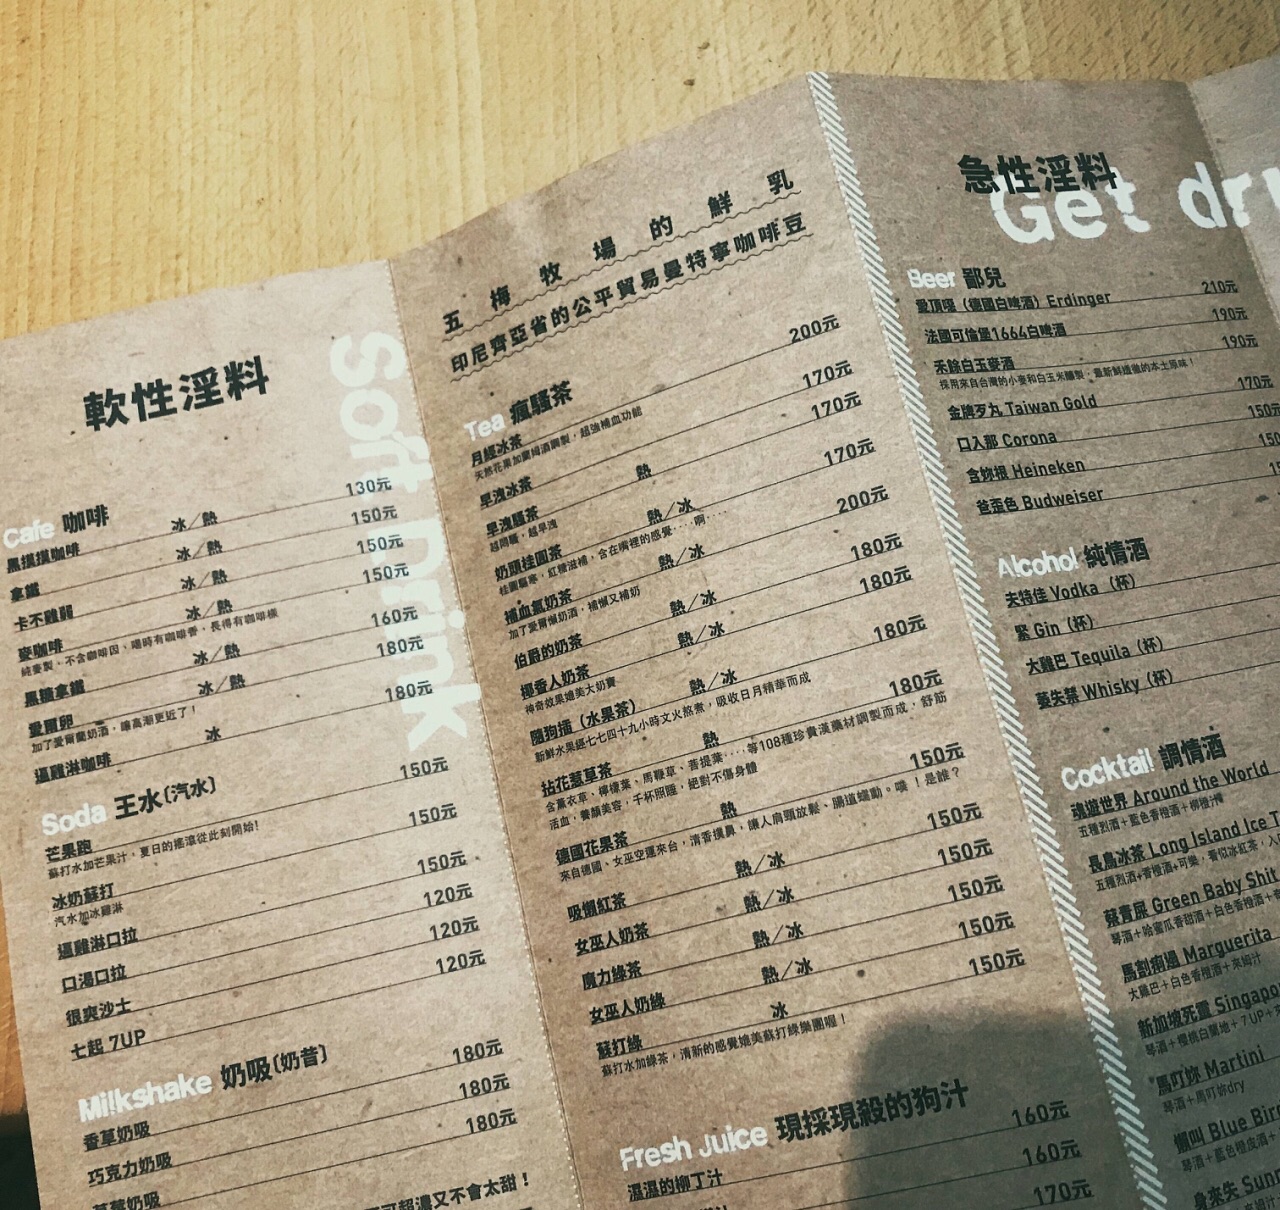 軟性淫料
Soft Drink
Cafe 咖啡
黑摸摸咖啡 冰/熱 130元
拿鐵 冰/熱 150元
卡不雞弱 冰/熱 150元
麥咖啡 冰/熱 150元
純麥製、不含咖啡因、喝時有咖啡香、長得有咖啡樣
黑糖拿鐵 冰/熱 160元
愛爾卵 冰/熱 180元
加了愛爾蘭奶酒,離高潮更近了!
逼雞淋咖啡 冰 180元
Soda 王水(汽水)
芒果跑 150元
蘇打水加芒果汁,夏日的搖滾從此刻開始!
冰奶蘇打 150元
汽水加冰雞淋
逼雞淋口拉 150元
口渴口拉 120元
很爽沙士 120元
七起 7UP 120元
Milkshake 奶吸(奶昔)
香草奶吸 180元
巧克力奶吸 180元
草莓奶吸 180元
可超濃又不會太甜!
五梅牧場的鮮乳
印尼齊亞省的公平貿易曼特寧咖啡豆
Tea 瘋騷茶
月經冰茶 200元
天然花果加蘭姆酒調製,超強補血功能
早洩冰茶 170元
早洩騷茶 熱 170元
越悶騷,越早洩
奶頭桂圓茶 熱/冰 170元
桂圓驅寒,紅糖滋補,含在嘴裡的感覺....啊....
補血氣奶茶 熱/冰 200元
加了愛爾懶奶酒,補懶又補奶
伯爵的奶茶 熱/冰 180元
椰香人奶茶 熱/冰 180元
神奇效果媲美大奶寶
隨狗插(水果茶) 熱/冰 180元
新鮮水果經七七四十九小時文火熬煮,吸收日月精華而成
拈花惹草茶 熱 180元
含薰衣草、檸檬葉、馬鞭草、菩提葉....等108種珍貴漢藥材調製而成,舒筋
活血,養顏美容,千杯照睡,絕對不傷身體
德國花果茶 熱 150元
來自德國、女巫空運來台,清香撲鼻,讓人肩頸放鬆、腸道蠕動。噗!是誰?
吸懶紅茶 熱/冰 150元
女巫人奶茶 熱/冰 150元
魔力綠茶 熱/冰 150元
女巫人奶綠 熱/冰 150元
蘇打綠 冰 150元
蘇打水加綠茶,清新的感覺媲美蘇打綠樂團喔!
Fresh Juice 現採現殺的狗汁
濕濕的柳丁汁 160元
160元
170元
急性淫料
Get dru
Beer 鄙兒
愛頂噹(德國白啤酒)Erdinger 210元
法國可倫堡1664白啤酒 190元
禾餘白玉麥酒 190元
採用來自台灣的小麥和白玉米釀製,最新鮮純徹的本土原味!
金牌歹丸 Taiwan Gold 170元
口入那 Corona 150元
含妳根 Heineken 150
爸歪色 Budweiser
Alcohol 純情酒
夫特佳 Vodka(杯)
緊 Gin(杯)
大雞巴 Tequila(杯)
萎失禁 Whisky(杯)
Cocktail 調情酒
魂遊世界 Around the World
五種烈酒+藍色香橙酒+柳橙汁
長鳥冰茶 Long Island Ice T
五種烈酒+香橙酒+可樂,看似冰紅茶,入
蔡青屎 Green Baby Shit
琴酒+哈蜜瓜香甜酒+白色香橙酒+
馬割痢過 Marguerita
大雞巴+白色香橙酒+萊姆汁
新加坡死靈 Singapo
琴酒+櫻桃白蘭地+7UP+
馬叮妳 Martini
琴酒+馬叮妳dry
懶叫 Blue Bir
琴酒+藍色橙皮酒+
身來失 Sun